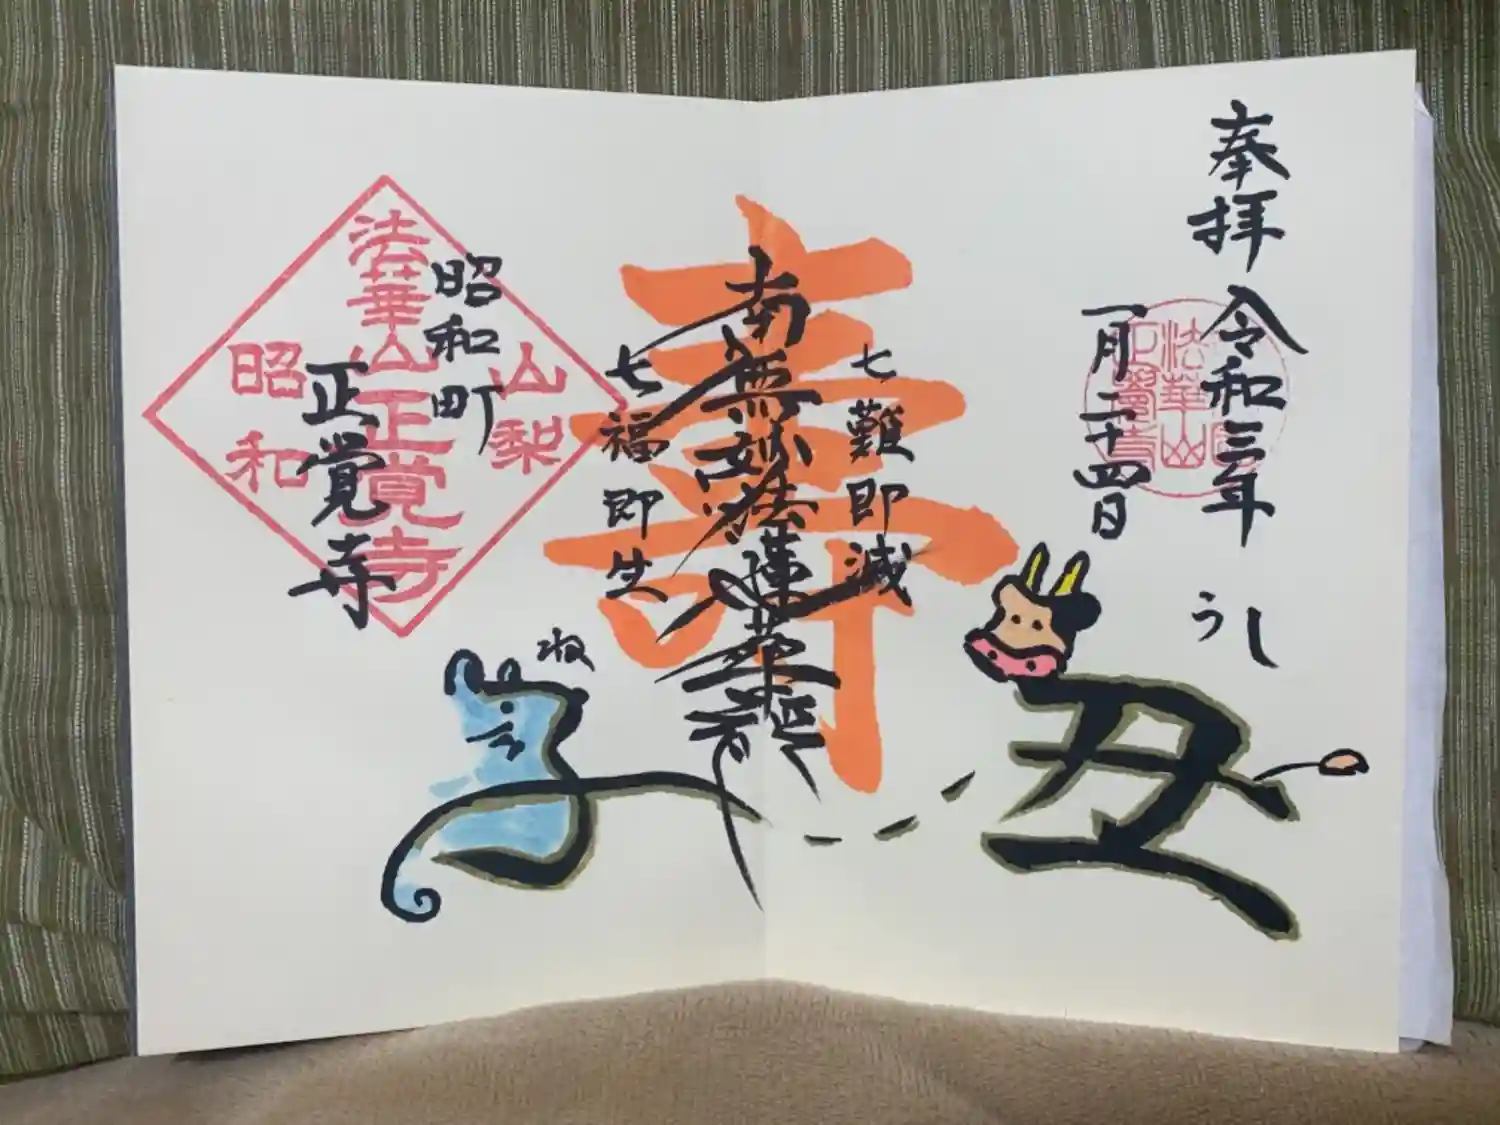 奉拝
令和三年
一月二十四日
うし
丑
七難即滅
南無妙法蓮華経
寿
七福即生
ね
子
昭和町
正覚寺
山梨
法華山正覚寺
昭和
法華山
正覺寺